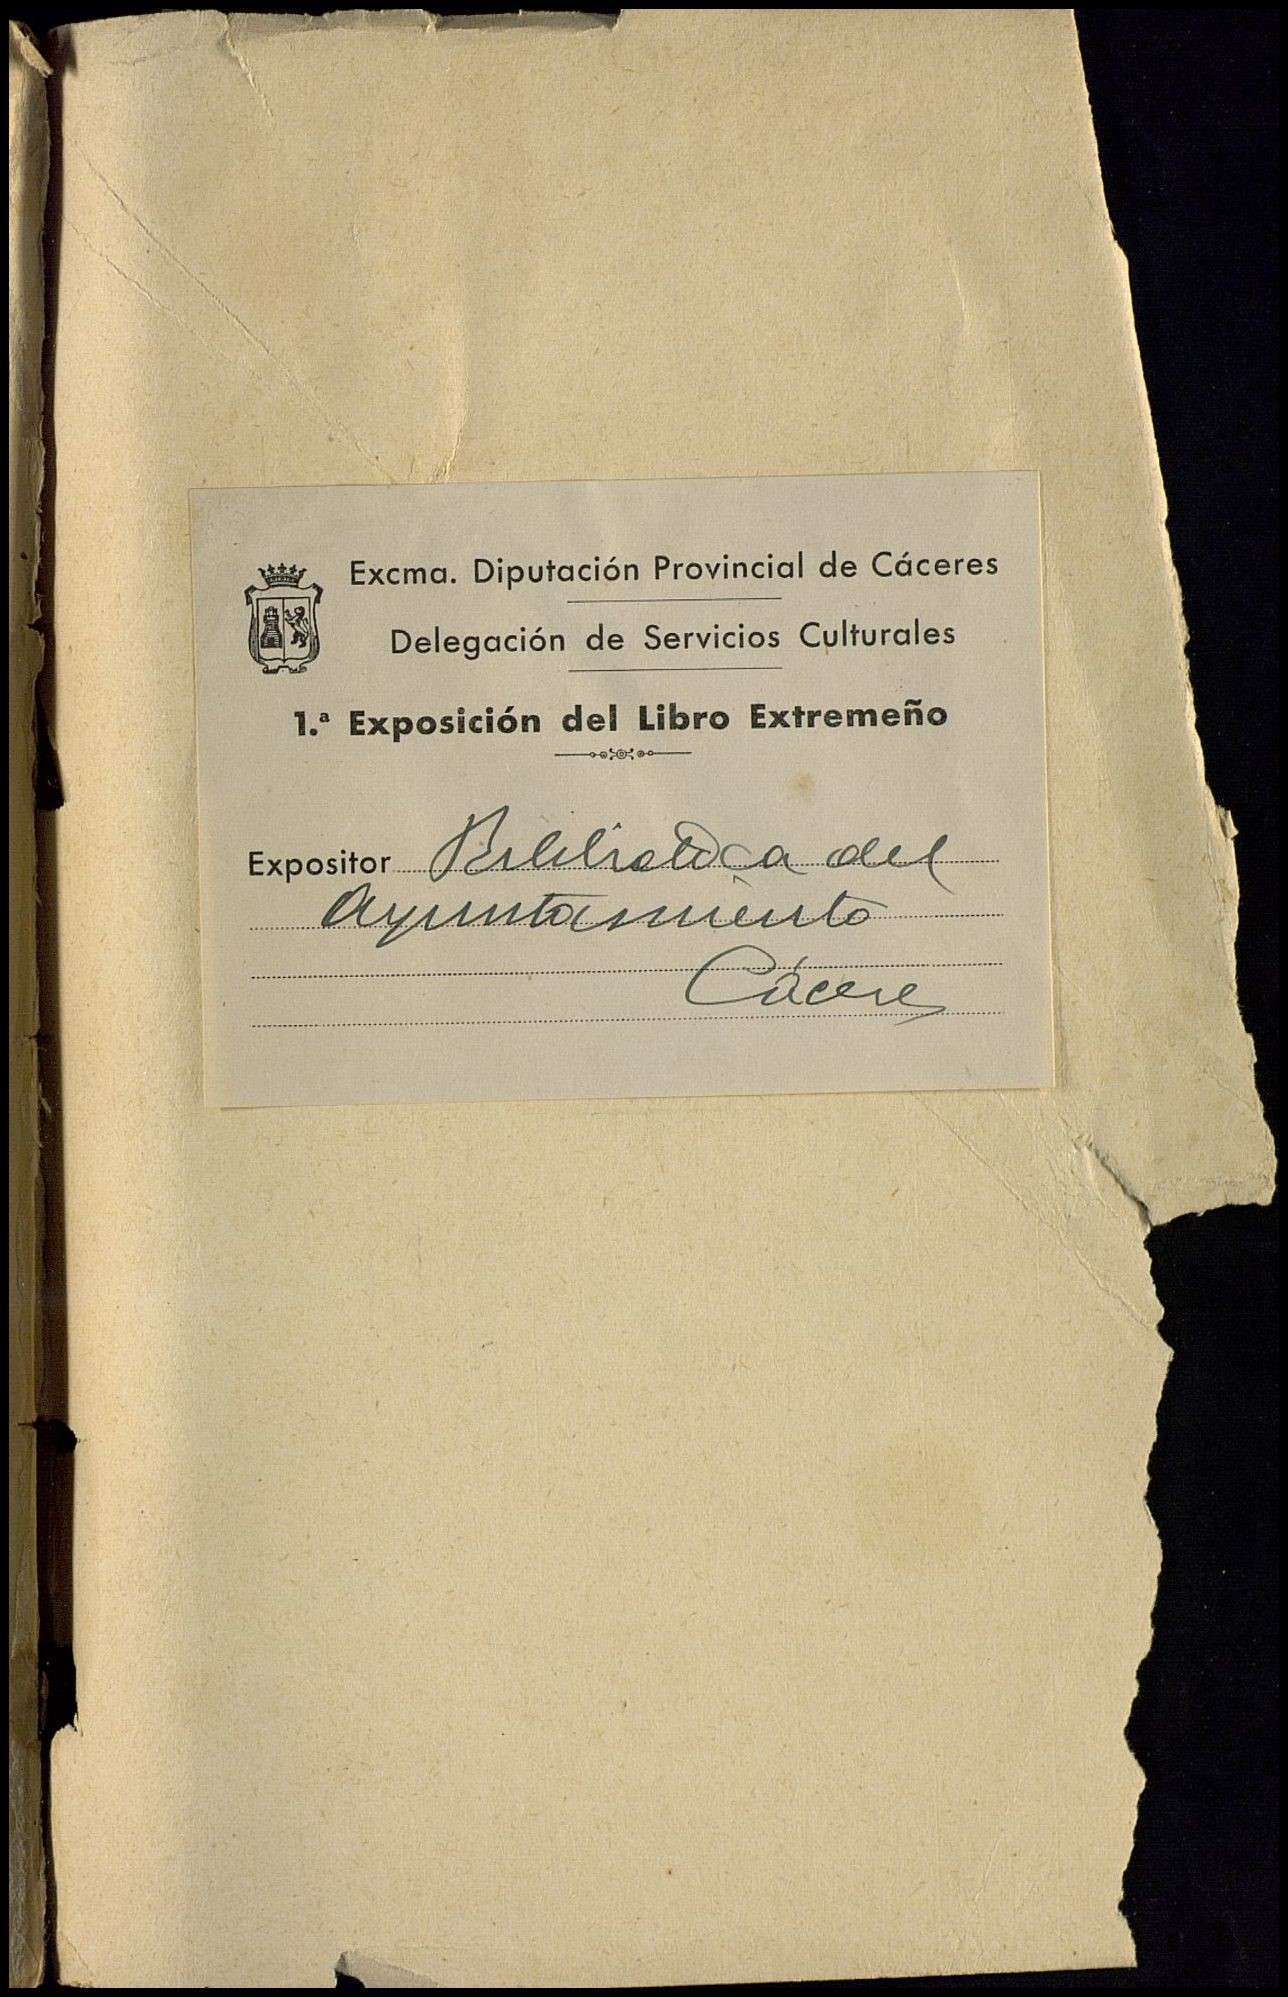 Excma. Diputación Provincial de Cáceres
Delegación de Servicios Culturales
1.ª Exposición del Libro Extremeño
Expositor Biblioteca del
Ayuntamiento
Cáceres